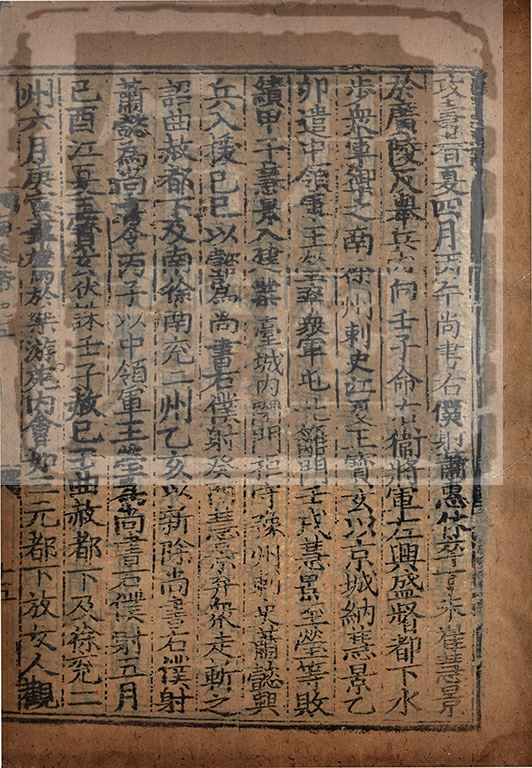 夏四月丙午尚書右僕射蕭惠休卒丁未崔慧景
於廣陵反舉兵內向壬子命右衛將軍左興盛督都下水
步衆軍禦之南徐州刺史江夏王寶玄以京城納慧景乙
卯遣中領軍王瑩率衆軍屯北籬門壬戌慧景至瑩等敗
績甲子慧景入建業臺城內閉門拒守豫州刺史蕭懿興
兵入援己巳以懿爲尚書右僕射癸酉慧景弃衆走斬之
詔曲赦都下及南徐南兗二州乙亥以新除尚書右僕射
蕭懿爲尚書令丙子以中領軍王瑩爲尚書右僕射五月
己酉江夏王寶玄伏誅壬子赦己曲赦都下及徐兗二
州六月庚寅車駕於樂游苑內會如三元都下放女人觀